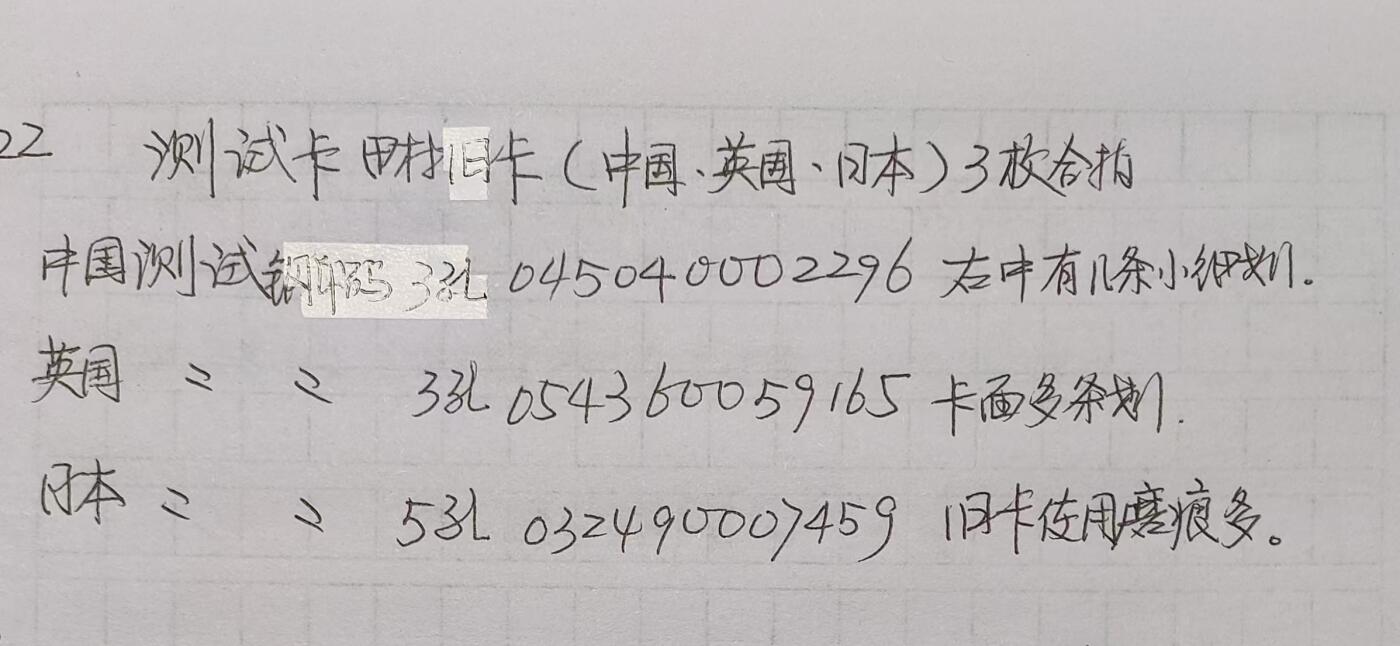 22 测试卡 田村旧卡（中国、英国、日本）3枚合拍
中国测试钢印码 33L 045040002296 右中有几条小细划.
英国 〃 〃 33L 054360059165 卡面多条划.
日本 〃 〃 53L 032490007459 旧卡使用磨痕多。